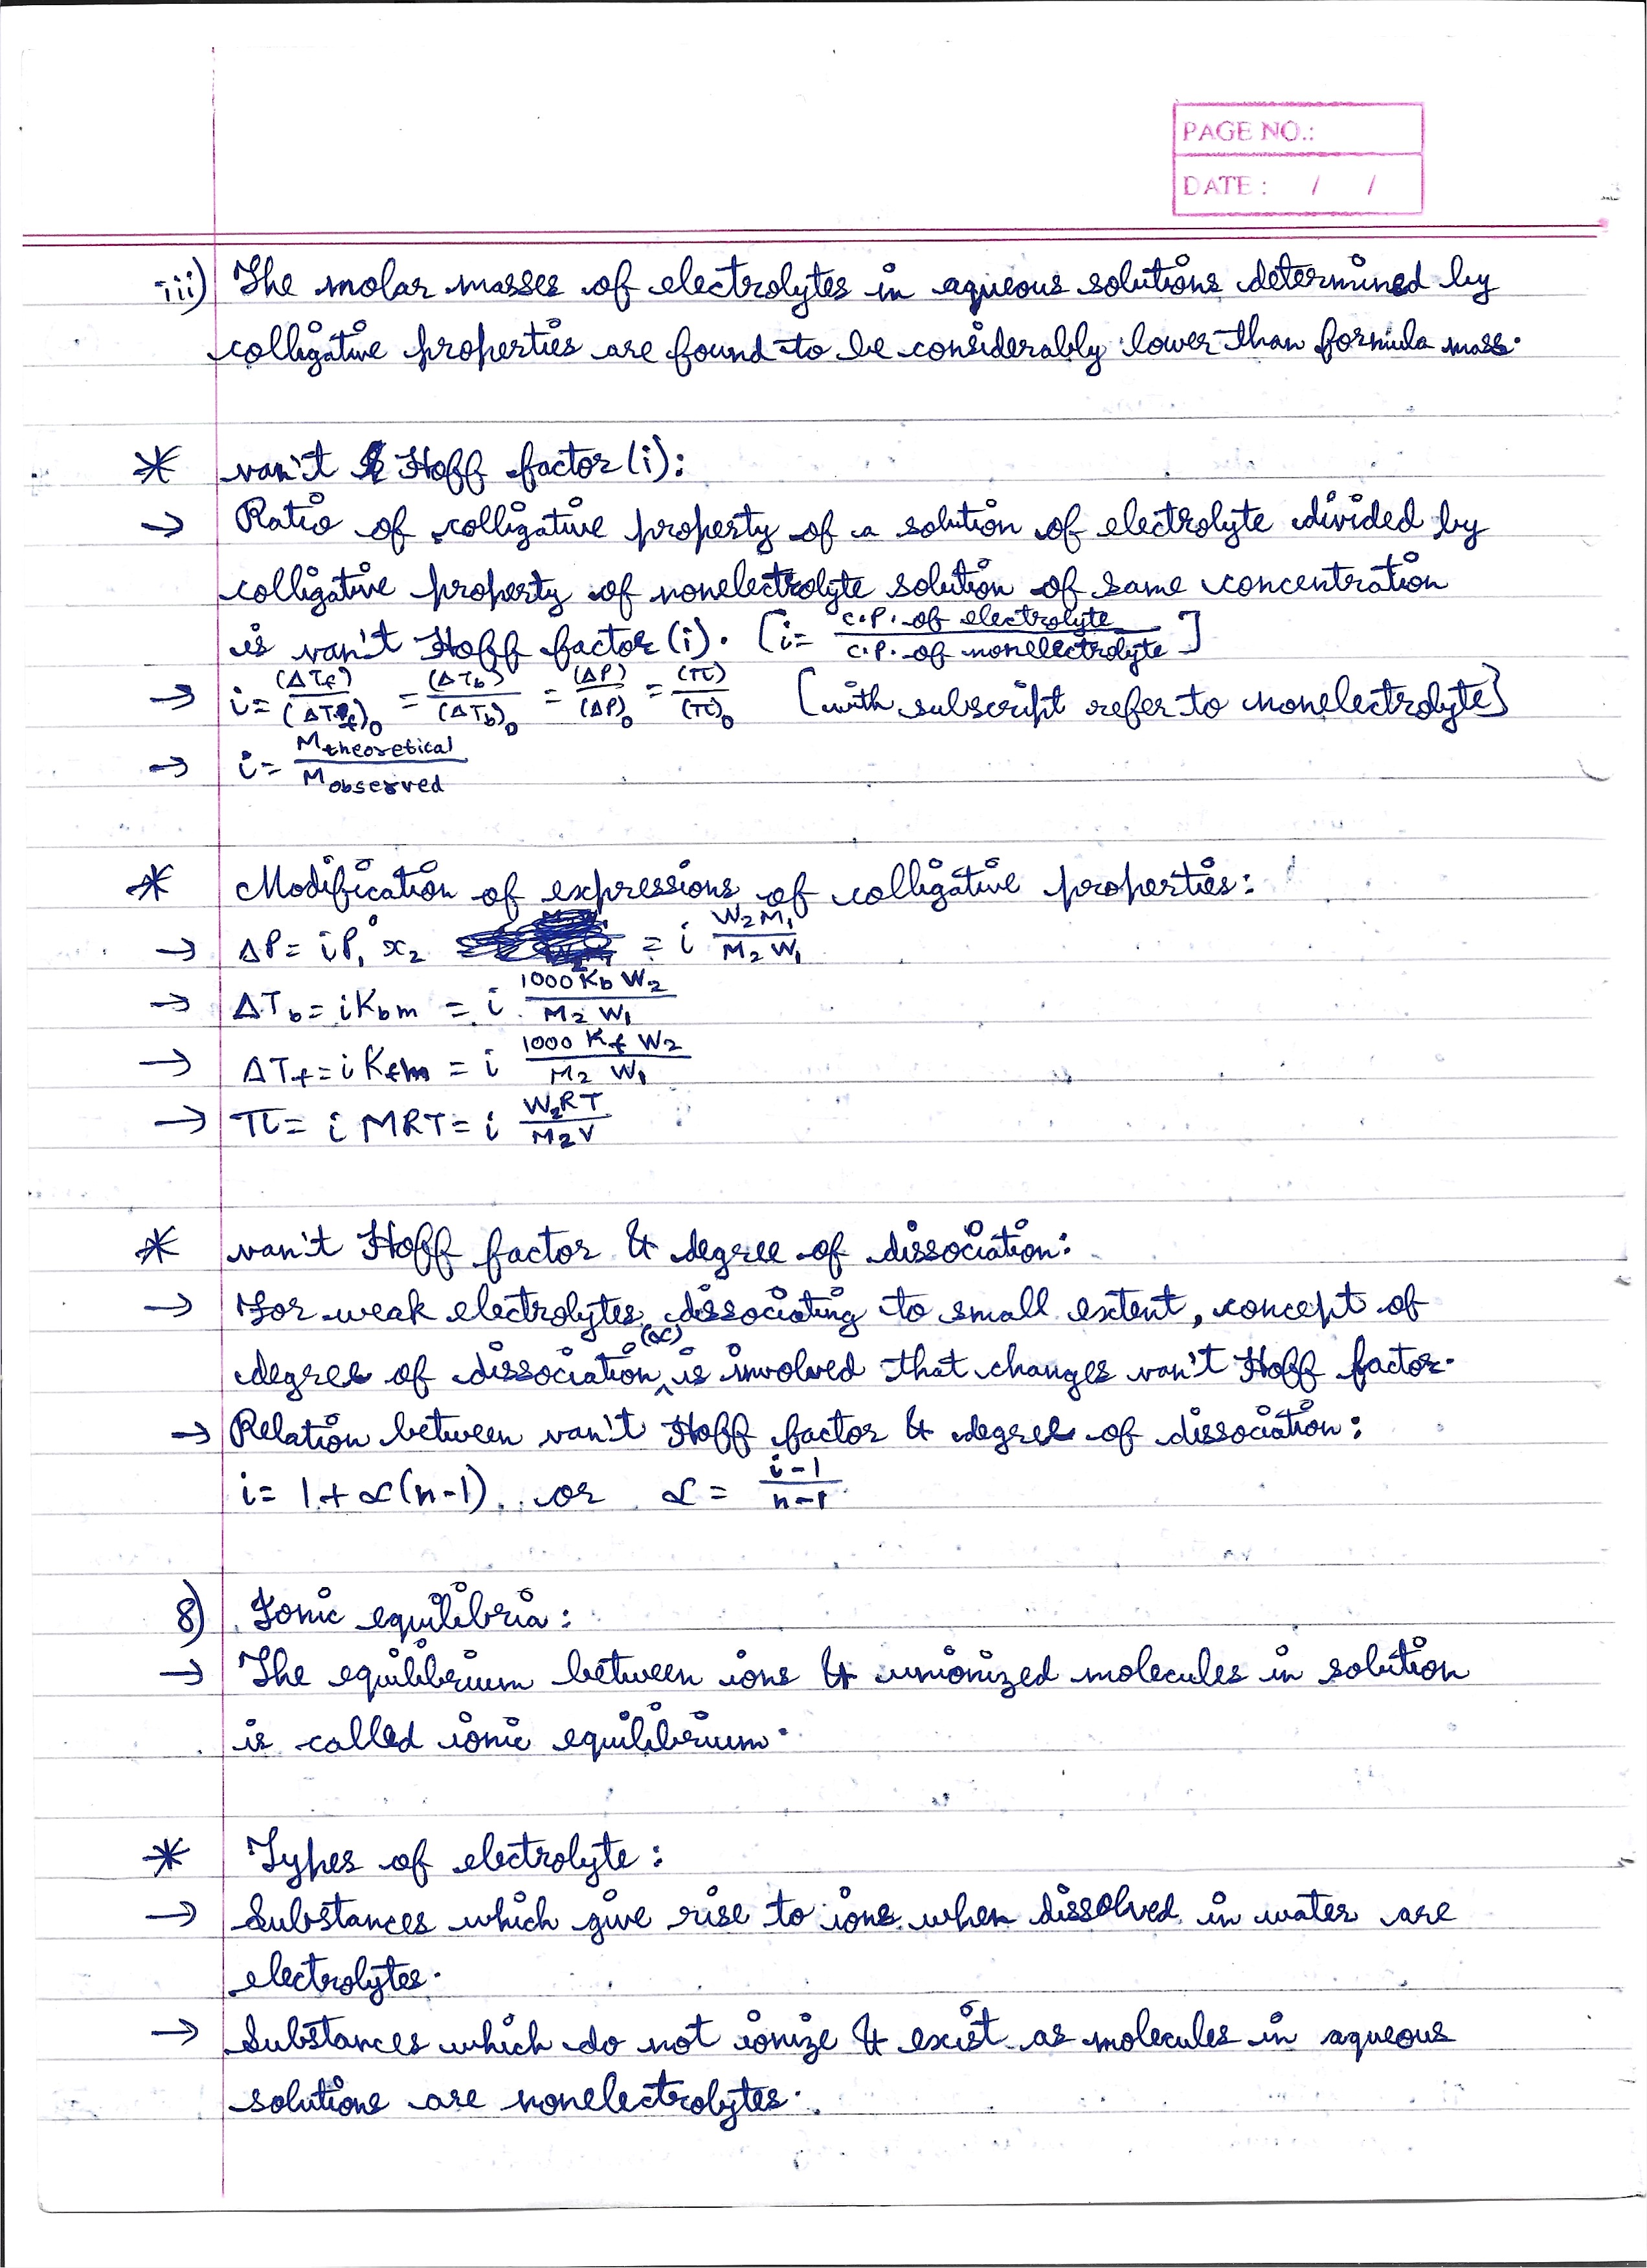 PAGE NO.:
DATE : / /
iii) The molar masses of electrolytes in aqueous solutions determined by
colligative properties are found to be considerably lower than formula mass.
* van't Hoff factor (i):
→ Ratio of colligative property of a solution of electrolyte divided by
colligative property of nonelectrolyte solution of same concentration
is van't Hoff factor (i). [i = C.P. of electrolyte / C.P. of nonelectrolyte]
→ i = (ΔTf)/(ΔTf)₀ = (ΔTb)/(ΔTb)₀ = (ΔP)/(ΔP)₀ = (π)/(π)₀ [with subscript refer to nonelectrolyte]
→ i = Mtheoretical / Mobserved
* Modification of expressions of colligative properties:
→ ΔP = i P₁° x₂ = i W₂M₁ / M₂W₁
→ ΔTb = i Kbm = i 1000 Kb W₂ / M₂ W₁
→ ΔTf = i Kfm = i 1000 Kf W₂ / M₂ W₁
→ π = i MRT = i W₂RT / M₂V
* van't Hoff factor & degree of dissociation:
→ For weak electrolytes, dissociating to small extent, concept of
degree of dissociation (α) is involved that changes van't Hoff factor.
→ Relation between van't Hoff factor & degree of dissociation:
i = 1 + α(n-1) or α = i-1 / n-1
8) Ionic equilibria:
→ The equilibrium between ions & unionized molecules in solution
is called ionic equilibrium.
* Types of electrolyte:
→ Substances which give rise to ions when dissolved in water are
electrolytes.
→ Substances which do not ionize & exist as molecules in aqueous
solutions are nonelectrolytes.